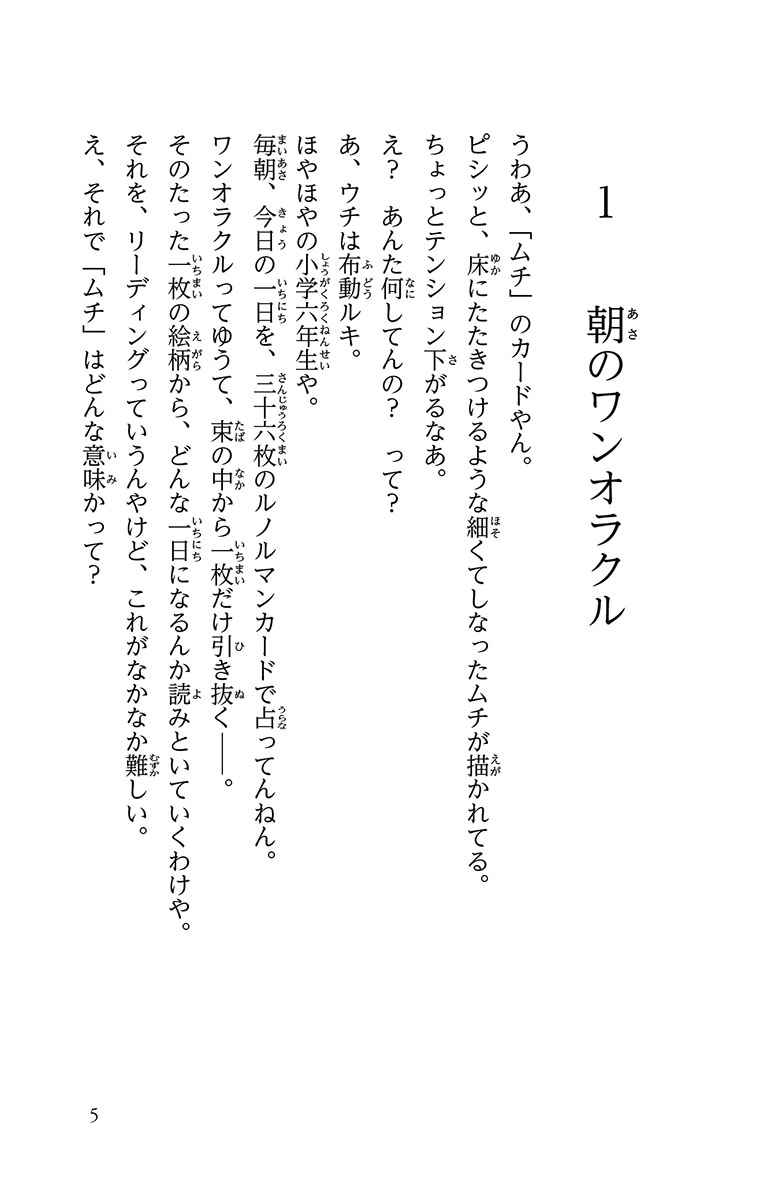 1　朝のワンオラクル
うわあ、「ムチ」のカードやん。
ピシッと、床にたたきつけるような細くてしなったムチが描かれてる。
ちょっとテンション下がるなあ。
え？　あんた何してんの？　って？
あ、ウチは布動ルキ。
ほやほやの小学六年生や。
毎朝、今日の一日を、三十六枚のルノルマンカードで占ってんねん。
ワンオラクルってゆうて、束の中から一枚だけ引き抜く――。
そのたった一枚の絵柄から、どんな一日になるんか読みといていくわけや。
それを、リーディングっていうんやけど、これがなかなか難しい。
え、それで「ムチ」はどんな意味かって？
5